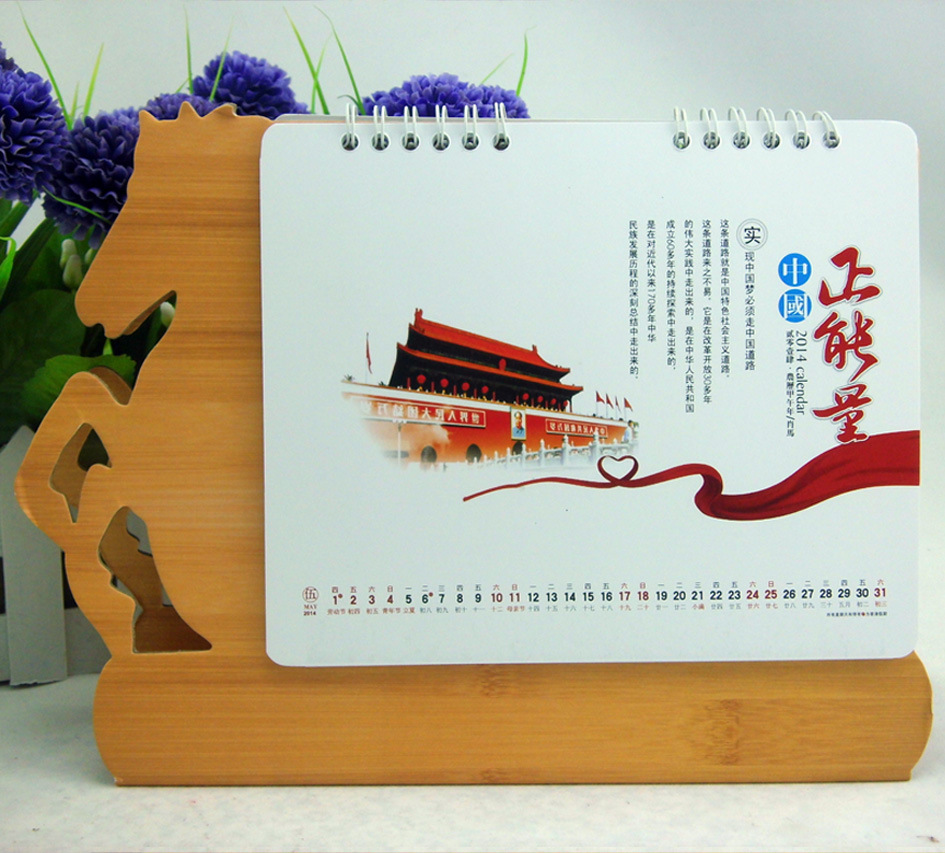 正能量
中國
2014 calendar
贰零壹肆·農曆甲午年/肖馬
实现中国梦必须走中国道路
这条道路就是中国特色社会主义道路。
这条道路来之不易,它是在改革开放30多年
的伟大实践中走出来的,是在中华人民共和国
成立60多年的持续探索中走出来的,
是在对近代以来170多年中华
民族发展历程的深刻总结中走出来的,
伍
MAY
2014
四 五 六 日 一 二 三 四 五 六 日 一 二 三 四 五 六 日 一 二 三 四 五 六 日 一 二 三 四 五 六
1 2 3 4 5 6 7 8 9 10 11 12 13 14 15 16 17 18 19 20 21 22 23 24 25 26 27 28 29 30 31
劳动节 初四 初五 青年节 立夏 初八 初九 初十 十一 十二 母亲节 十四 十五 十六 十七 十八 十九 二十 廿一 廿二 小满 廿四 廿五 廿六 廿七 廿八 廿九 三十 五月 初二 初三